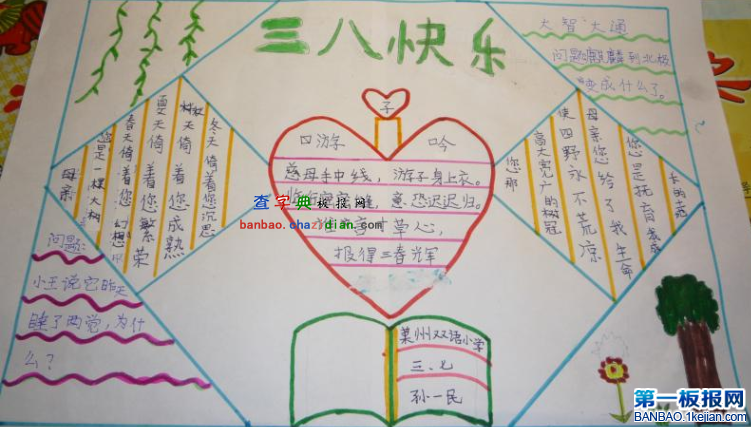 三八快乐
大智大通
问题:
到北极
变成什么了。
子
口游 吟
慈母手中线，游子身上衣。
临行密密缝，意恐迟迟归。
草心，
报得三春光军
母亲
您是一棵大树
春天倚着您幻想
夏天倚着您繁荣
秋天倚着您成熟
冬天倚着您沉思
您那
高大宽广的树冠
使四野永不荒凉
母亲您给了我生命
您是抚育我成
长的土壤
问题:
小王说它昨天
睡了两觉,为什
么?
莱州双语小学
三、七
孙一民
查字典板报网
banbao.chazidian.com
第一板报网
BANBAO.1kejian.com